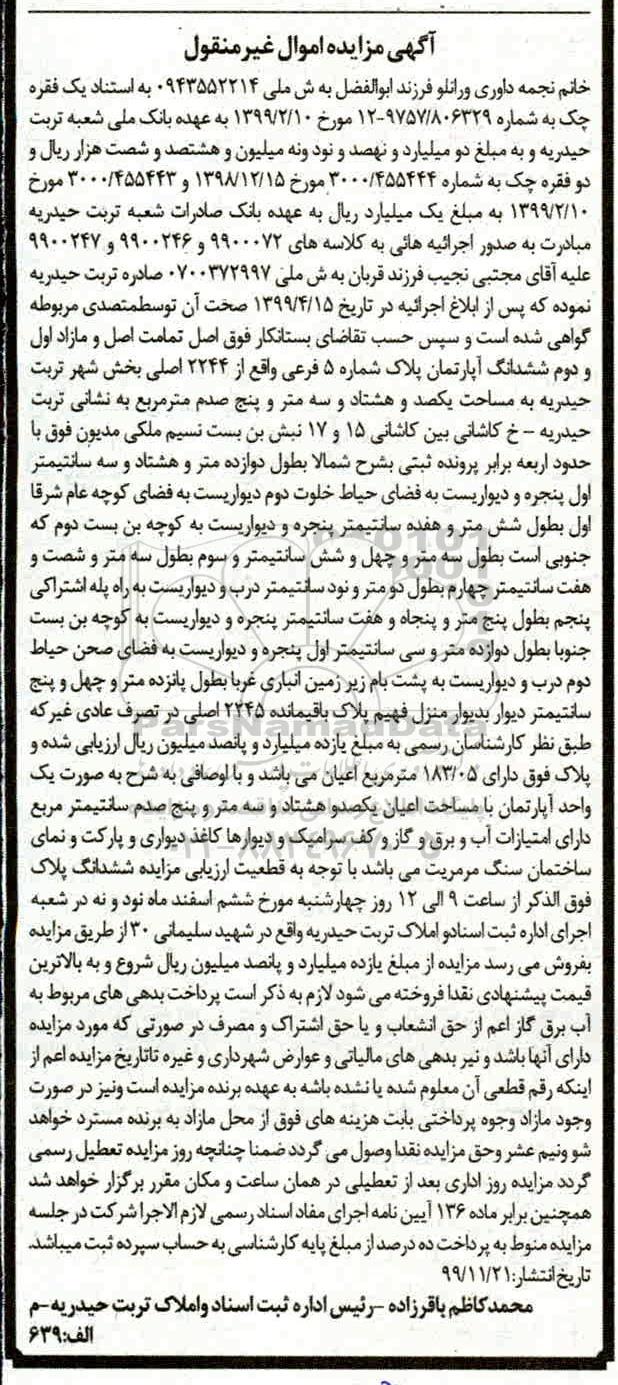 آگهی مزایده اموال غیر منقول
خانم نجمه داوری ورانلو فرزند ابوالفضل به ش ملی ۰۹۴۳۵۵۲۲۱۴ به استناد یک فقره
چک به شماره ۱۲-۹۷۵۷/۸۰۶۳۲۹ مورخ ۱۳۹۹/۲/۱۰ به عهده بانک ملی شعبه تربت
حیدریه و به مبلغ دو میلیارد و نهصد و نود ونه میلیون و هشتصد و شصت هزار ریال و
دو فقره چک به شماره ۳۰۰۰/۴۵۵۴۴۴ مورخ ۱۳۹۸/۱۲/۱۵ و ۳۰۰۰/۴۵۵۴۴۳ مورخ
۱۳۹۹/۲/۱۰ به مبلغ یک میلیارد ریال به عهده بانک صادرات شعبه تربت حیدریه
مبادرت به صدور اجرائیه هائی به کلاسه های ۹۹۰۰۰۷۲ و ۹۹۰۰۲۴۶ و ۹۹۰۰۲۴۷
علیه آقای مجتبی نجیب فرزند قربان به ش ملی ۰۷۰۰۳۷۲۹۹۷ صادره تربت حیدریه
نموده که پس از ابلاغ اجرائیه در تاریخ ۱۳۹۹/۴/۱۵ صحت آن توسطمتصدی مربوطه
گواهی شده است و سپس حسب تقاضای بستانکار فوق اصل تمامت اصل و مازاد اول
و دوم ششدانگ آپارتمان پلاک شماره ۵ فرعی واقع از ۲۲۴۴ اصلی بخش شهر تربت
حیدریه به مساحت یکصد و هشتاد و سه متر و پنج صدم مترمربع به نشانی تربت
حیدریه - خ کاشانی بین کاشانی ۱۵ و ۱۷ نبش بن بست نسیم ملکی مدیون فوق با
حدود اربعه برابر پرونده ثبتی بشرح شمالا بطول دوازده متر و هشتاد و سه سانتیمتر
اول پنجره و دیواریست به فضای حیاط خلوت دوم دیواریست به فضای کوچه عام شرقا
اول بطول شش متر و هفده سانتیمتر پنجره و دیواریست به کوچه بن بست دوم که
جنوبی است بطول سه متر و چهل و شش سانتیمتر و سوم بطول سه متر و شصت و
هفت سانتیمتر چهارم بطول دو متر و نود سانتیمتر درب و دیواریست به راه پله اشتراکی
پنجم بطول پنج متر و پنجاه و هفت سانتیمتر پنجره و دیواریست به کوچه بن بست
جنوبا بطول دوازده متر و سی سانتیمتر اول پنجره و دیواریست به فضای صحن حیاط
دوم درب و دیواریست به پشت بام زیر زمین انباری غربا بطول پانزده متر و چهل و پنج
سانتیمتر دیوار بدیوار منزل فهیم پلاک باقیمانده ۲۲۴۵ اصلی در تصرف عادی غیر که
طبق نظر کارشناسان رسمی به مبلغ یازده میلیارد و پانصد میلیون ریال ارزیابی شده و
پلاک فوق دارای ۱۸۳/۰۵ مترمربع اعیان می باشد و با اوصافی به شرح به صورت یک
واحد آپارتمان با مساحت اعیان یکصدو هشتاد و سه متر و پنج صدم سانتیمتر مربع
دارای امتیازات آب و برق و گاز و کف سرامیک و دیوارها کاغذ دیواری و پارکت و نمای
ساختمان سنگ مرمریت می باشد با توجه به قطعیت ارزیابی مزایده ششدانگ پلاک
فوق الذکر از ساعت ۹ الی ۱۲ روز چهارشنبه مورخ ششم اسفند ماه نود و نه در شعبه
اجرای اداره ثبت اسنادو املاک تربت حیدریه واقع در شهید سلیمانی ۳۰ از طریق مزایده
بفروش می رسد مزایده از مبلغ یازده میلیارد و پانصد میلیون ریال شروع و به بالاترین
قیمت پیشنهادی نقدا فروخته می شود لازم به ذکر است پرداخت بدهی های مربوط به
آب برق گاز اعم از حق انشعاب و یا حق اشتراک و مصرف در صورتی که مورد مزایده
دارای آنها باشد و نیر بدهی های مالیاتی و عوارض شهرداری و غیره تاتاریخ مزایده اعم از
اینکه رقم قطعی آن معلوم شده یا نشده باشه به عهده برنده مزایده است ونیز در صورت
وجود مازاد وجوه پرداختی بابت هزینه های فوق از محل مازاد به برنده مسترد خواهد
شو ونیم عشر وحق مزایده نقدا وصول می گردد ضمنا چنانچه روز مزایده تعطیل رسمی
گردد مزایده روز اداری بعد از تعطیلی در همان ساعت و مکان مقرر برگزار خواهد شد
همچنین برابر ماده ۱۳۶ آیین نامه اجرای مفاد اسناد رسمی لازم الاجرا شرکت در جلسه
مزایده منوط به پرداخت ده درصد از مبلغ پایه کارشناسی به حساب سپرده ثبت میباشد.
تاریخ انتشار: ۹۹/۱۱/۲۱
محمد کاظم باقرزاده -رئیس اداره ثبت اسناد واملاک تربت حیدریه-م
الف: ۶۳۹
ParsNamadData